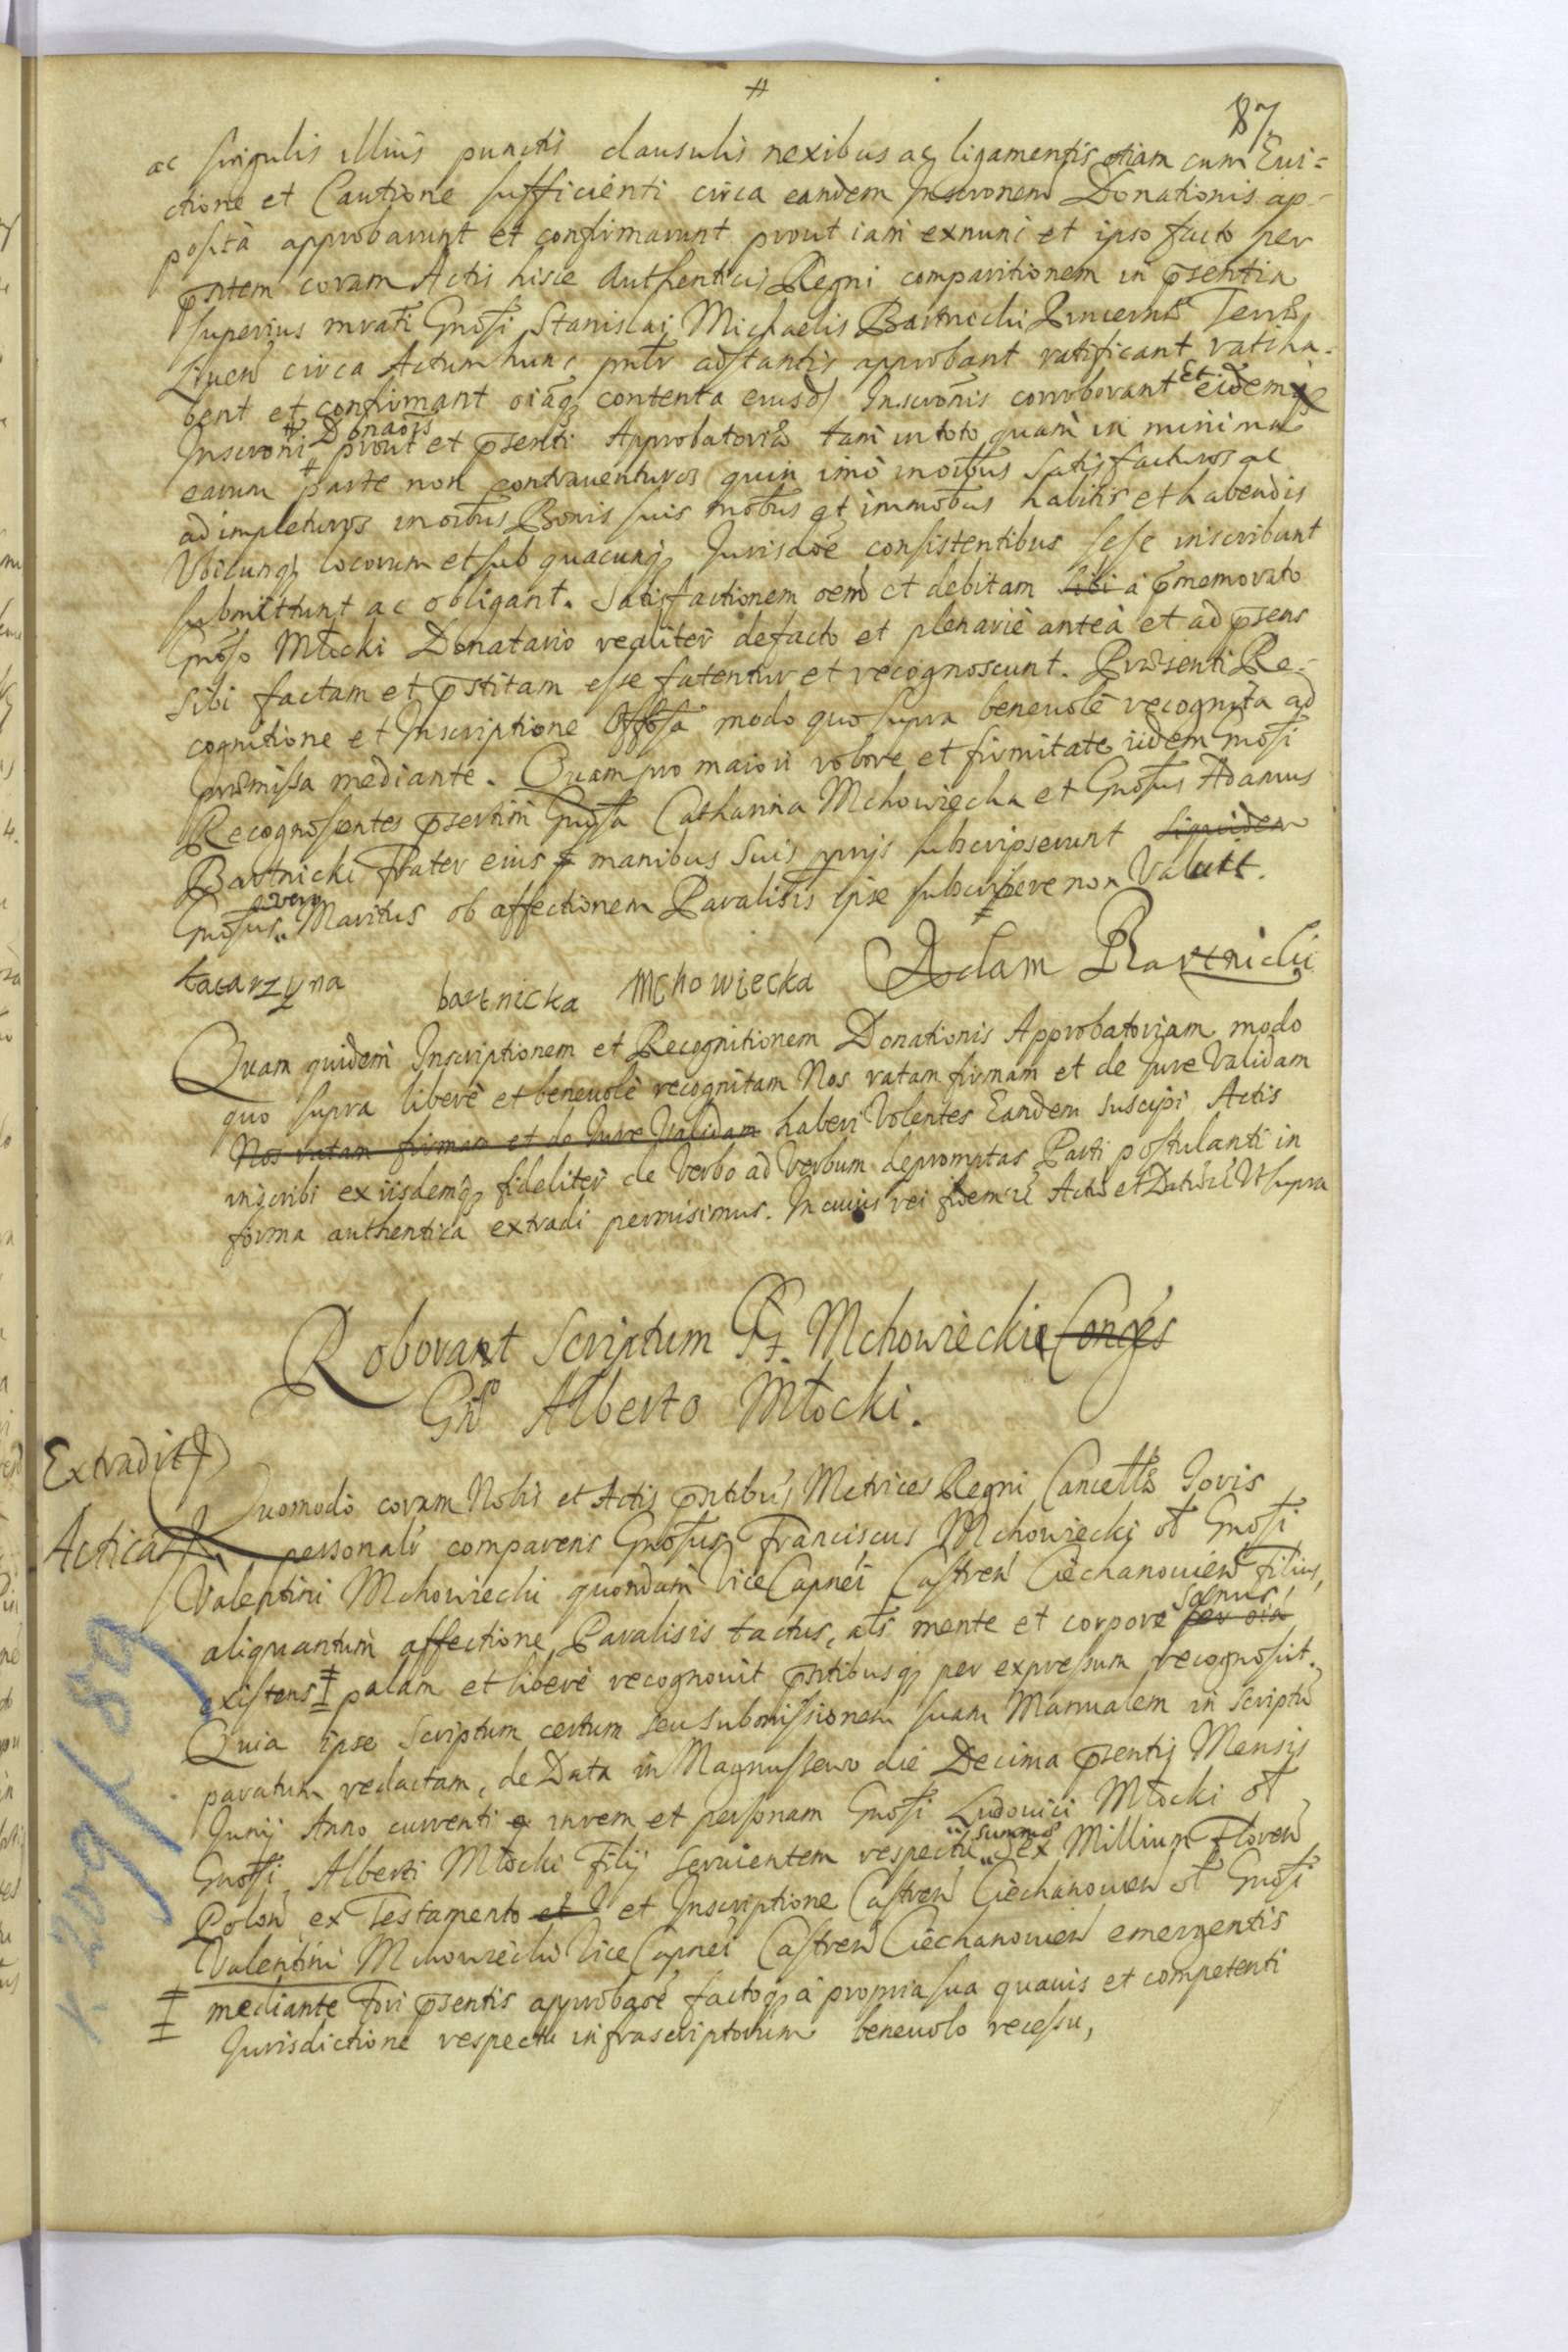 #
87
ac singulis illius punctis clausulis nexibus ac ligamentis etiam cum Evi=
ctione et Cautione sufficienti circa eandem Inscronem Donationis ap=
posità approbarunt et confirmarunt prout iam exnunc et ipso facto per
pntem coram Actis hisce Authenticis Regni comparitionem in psentia
superius mrati Gnosi Stanislai Michaelis Bartnicki Pincernæ Terræ
Liven circa Actum hunc pntr adstantis approbant ratificant ratiha=
bent et confirmant oiaq contenta eiusd Inscronis corroborant et eidem
Inscroni # Donaois prout et psenti Approbatoriæ tam in toto quàm in minima
earum # parte non contraventuros quin imò in oibus satisfacturos ac
adimpleturos in oibus Bonis suis mobus et immobus habitis et habendis
Ubicunq locorum et sub quacunq Jurisdoe consistentibus sese inscribunt
submittunt ac obligant. Satisfactionem oem et debitam sibi a pmemorato
Gnoso Młocki Donatario realiter defacto et plenariè anteà et ad psens
sibi factam et pstitam esse fatentur et recognoscunt. Præsenti Re=
cognitione et Inscriptione modo quo supra benevolè recognita ad
præmissa mediante. Quam pro maiori robore et firmitate iidem Gnosi
Recognoscentes psertim Gnosa Catharina Mchowiecka et Gnosus Adamus
Bartnicki Frater eius manibus suis pprijs subscripserunt siquidem
Gnosus „ verò Maritus ob affectionem Paralisis ipse subscribere non Valuit.
katarzyna bartnicka Mchowiecka Adam Bartnicki
Quam quidem Inscriptionem et Recognitionem Donationis Approbatoriam modo
quo supra liberè et benevolè recognitam Nos ratam firmam et de Jure Validam
Nos ratam firmam et de Jure Validam haberi Volentes Eandem suscipi Actis
inscribi ex iisdemq fideliter de Verbo ad Verbum depromptas Parti postulanti in
forma authentica extradi permisimus. In cuius rei fidem &c Actū et Datū &c Ut supra
Roborant Scriptum GG. Mchowiecki Conges
Gnō Alberto Młocki.
Extradit
Acticat
Quomodò coram Nobis et Actis pntibus Metrices Regni Cancellæ Iovis
personalr comparens Gnosus Franciscus Mchowiecki ol Gnosi
Valentini Mchowiecki quondam Vice Capnei Castren Ciechanovien Filius,
aliquantum affectione Paralisis tactus, als mente et corpore sanus per oia
existens ‡ palam et liberè recognovit pntibusq per expressum recognoscit.
Quia ipse Scriptum certum seu submissionem suam Manualem in scriptū
paratum redactam, de Data in Magnuszewo die Decima psentis Mensis
Junij Anno currenti in rem et personam Gnosi Ludovici Młocki ol
Gnosi Alberti Młocki Filij servientem respectu „ summæ Sex Millium Floren
Polon ex Testamento et I et Inscriptione Castren Ciechanovien ol Gnosi
Valentini Mchowiecki Vice Capnei Castren Ciechanovien emergentis
‡ mediante Fori psentis approbaoe factoq à propria sua quavis et competenti
Jurisdictione respectu infrascriptorum benevolo recessu,
k. 209/89